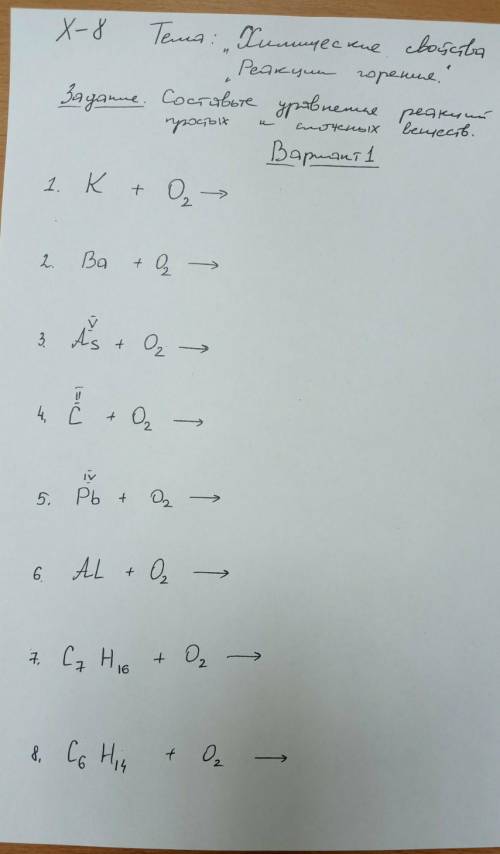 Х-8 Тема: „Химические свойства
„Реакции горения."
Задание. Составьте уравнения реакций
простых и сложных веществ.
Вариант 1
1. K + O₂ →
2. Ba + O₂ →
V
3. As + O₂ →
II
4. C + O₂ →
IV
5. Pb + O₂ →
6. AL + O₂ →
7. C₇ H₁₆ + O₂ →
8. C₆ H₁₄ + O₂ →